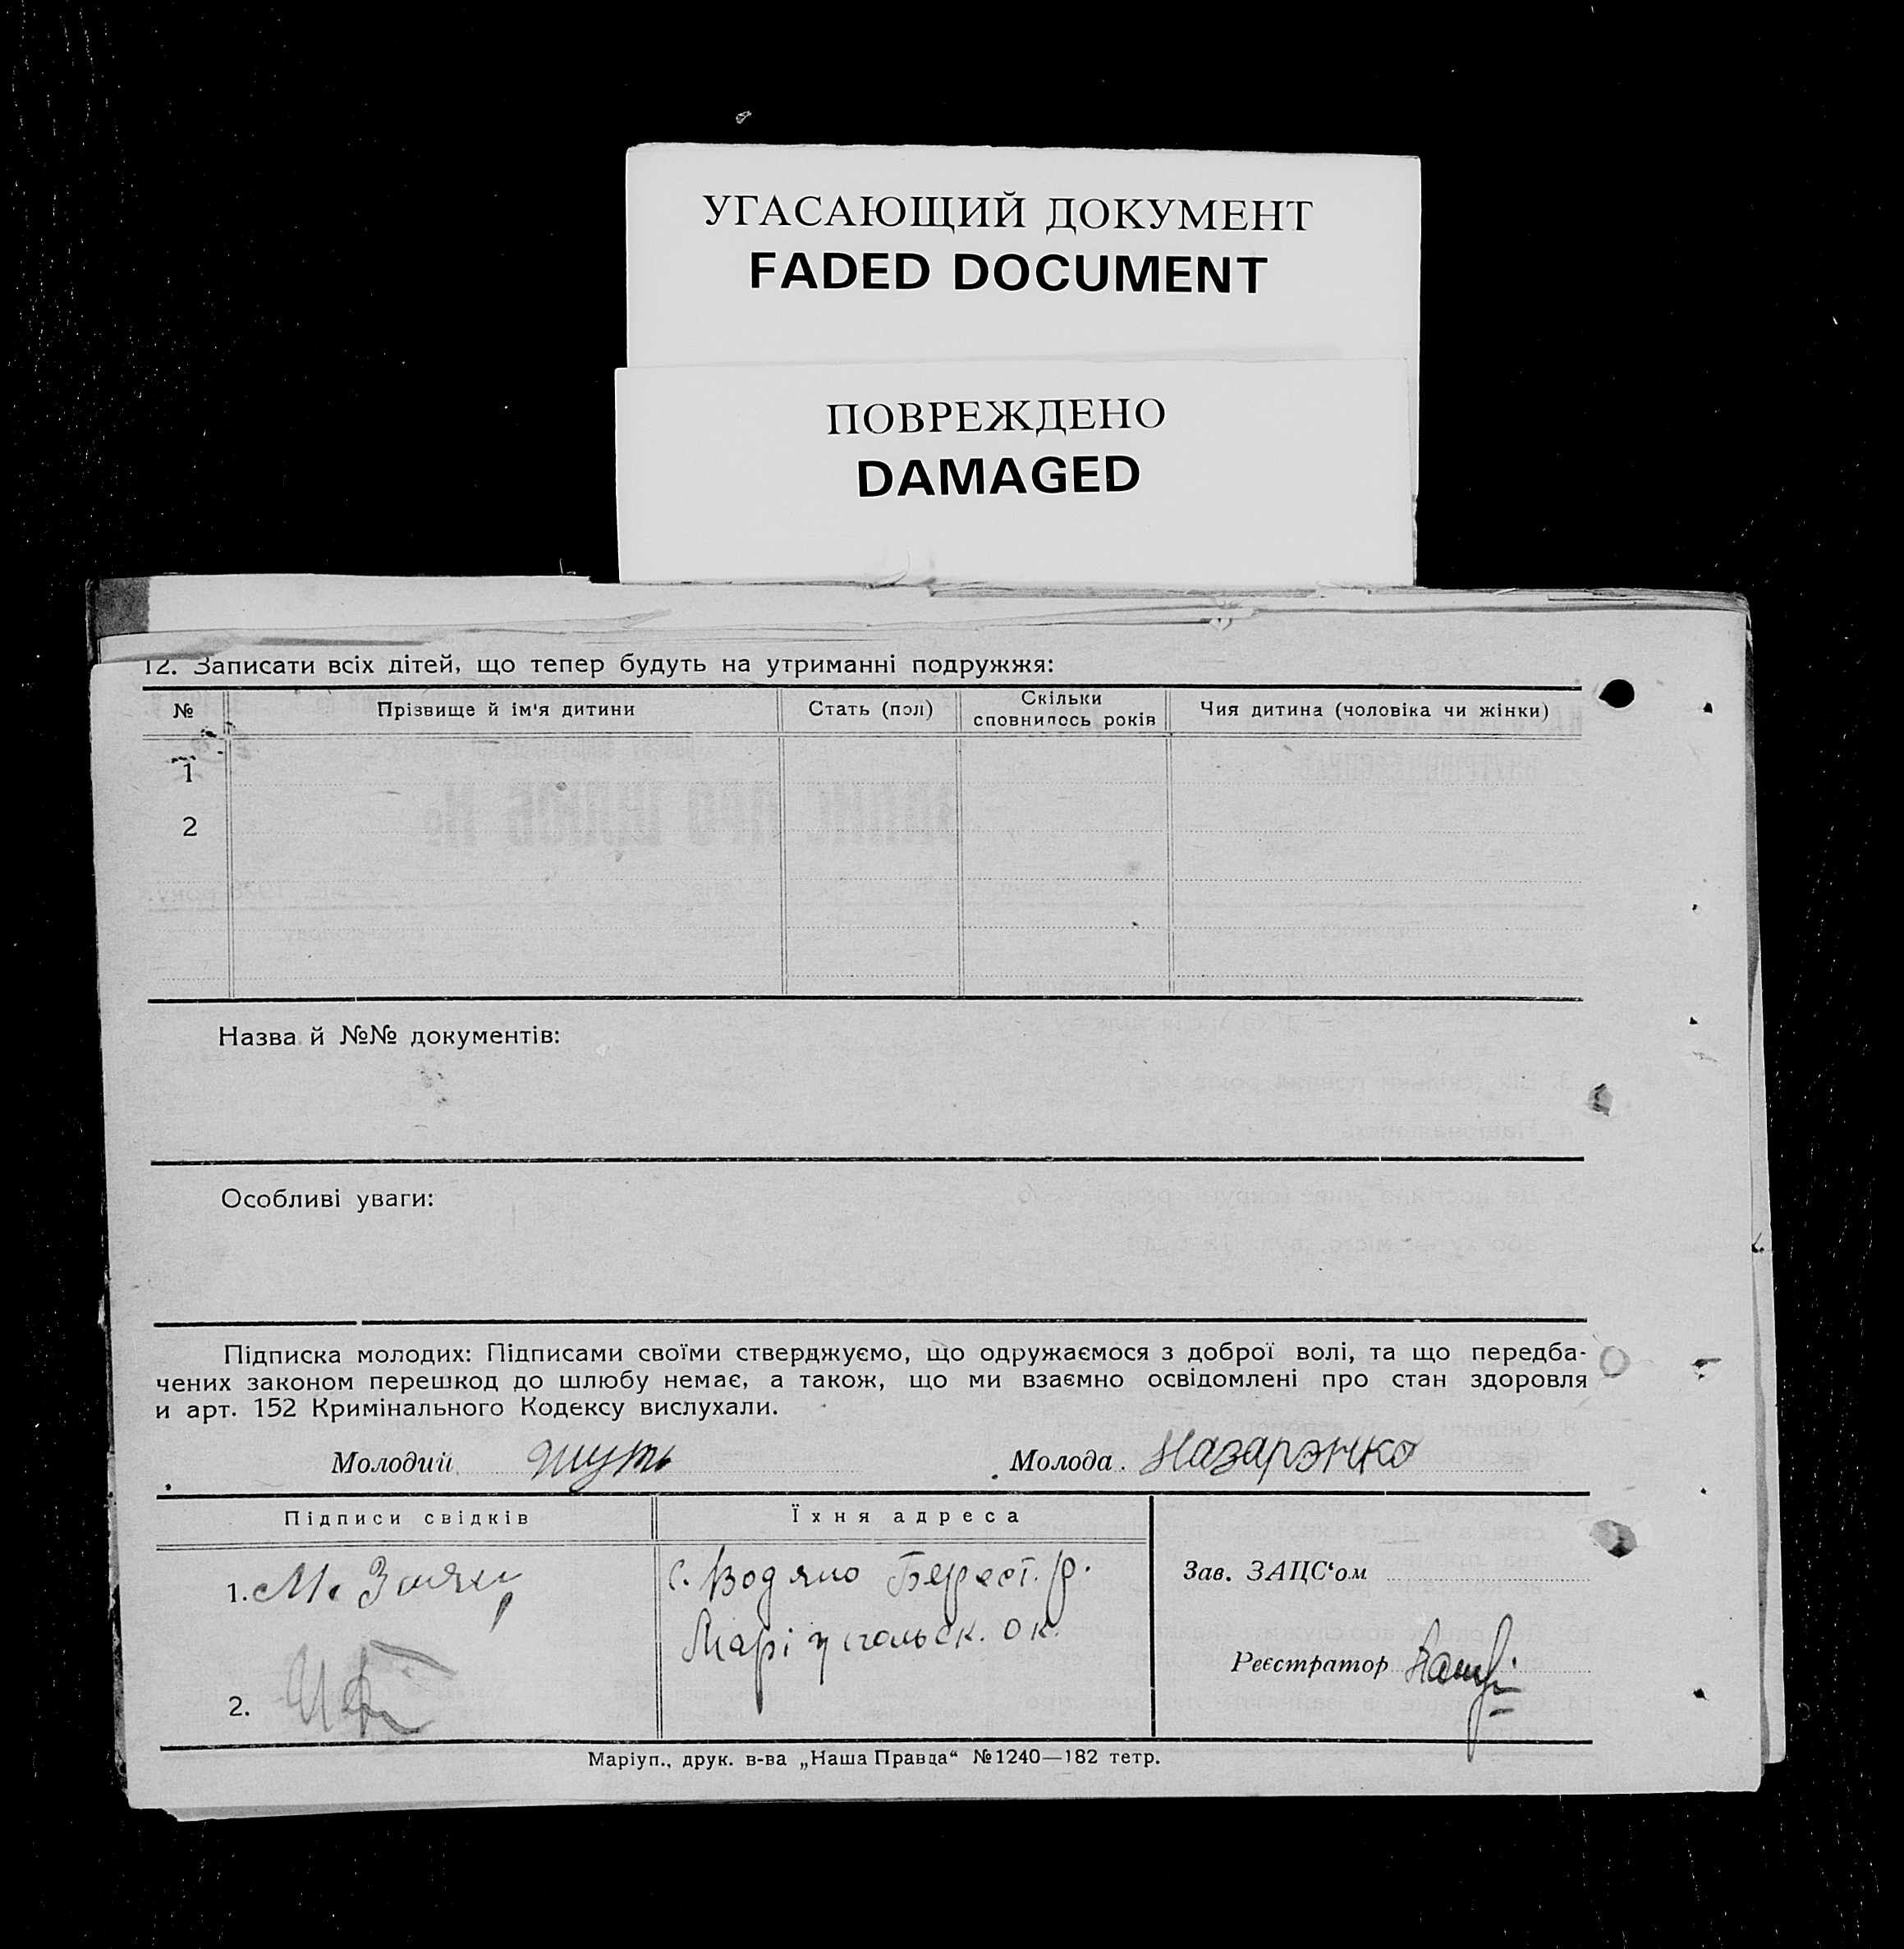 УГАСАЮЩИЙ ДОКУМЕНТ
FADED DOCUMENT
ПОВРЕЖДЕНО
DAMAGED
12. Записати всіх дітей, що тепер будуть на утриманні подружжя:
№ Прізвище й ім'я дитини Стать (пол) Скільки сповнилось років Чия дитина (чоловіка чи жінки)
1
2
Назва й №№ документів:
Особливі уваги:
Підписка молодих: Підписами своїми стверджуємо, що одружаємося з доброї волі, та що передба-
чених законом перешкод до шлюбу немає, а також, що ми взаємно освідомлені про стан здоровля
и арт. 152 Кримінального Кодексу вислухали.
Молодий Шуть Молода Назарэнко
Підписи свідків Їхня адреса
1. М. с. Водяно Берест. р. Зав. ЗАЦС'ом
Маріупольск. ок.
Реєстратор
2.
Маріуп., друк. в-ва „Наша Правда“ №1240—182 тетр.